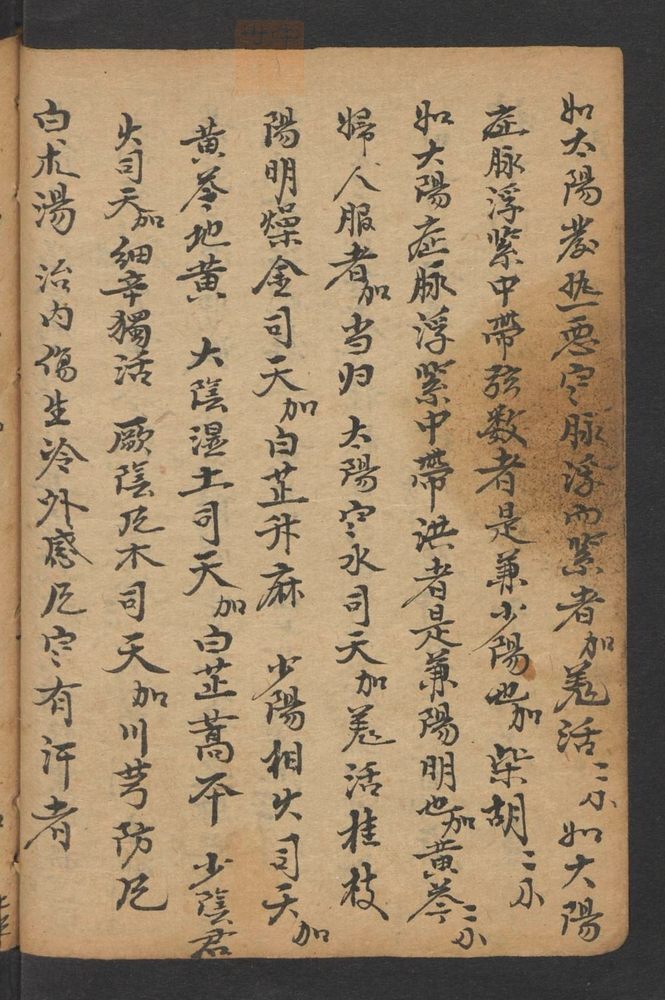 如太陽發热惡寒脉浮而紧者加羌活二分如大陽
症脉浮紧中帶弦数者是兼少陽也加柴胡二分
如大陽症脉浮紧中帶洪者是兼陽明也加黄芩二分
婦人服者加当归 太陽寒水司天加羌活桂枝
陽明燥金司天加白芷升麻 少陽相火司天加
黄芩地黄 大陰湿土司天加白芷蒿本 少陰君
火司天加細辛獨活 厥陰风木司天加川芎防风
白术湯 治内傷生冷外感风寒有汗者